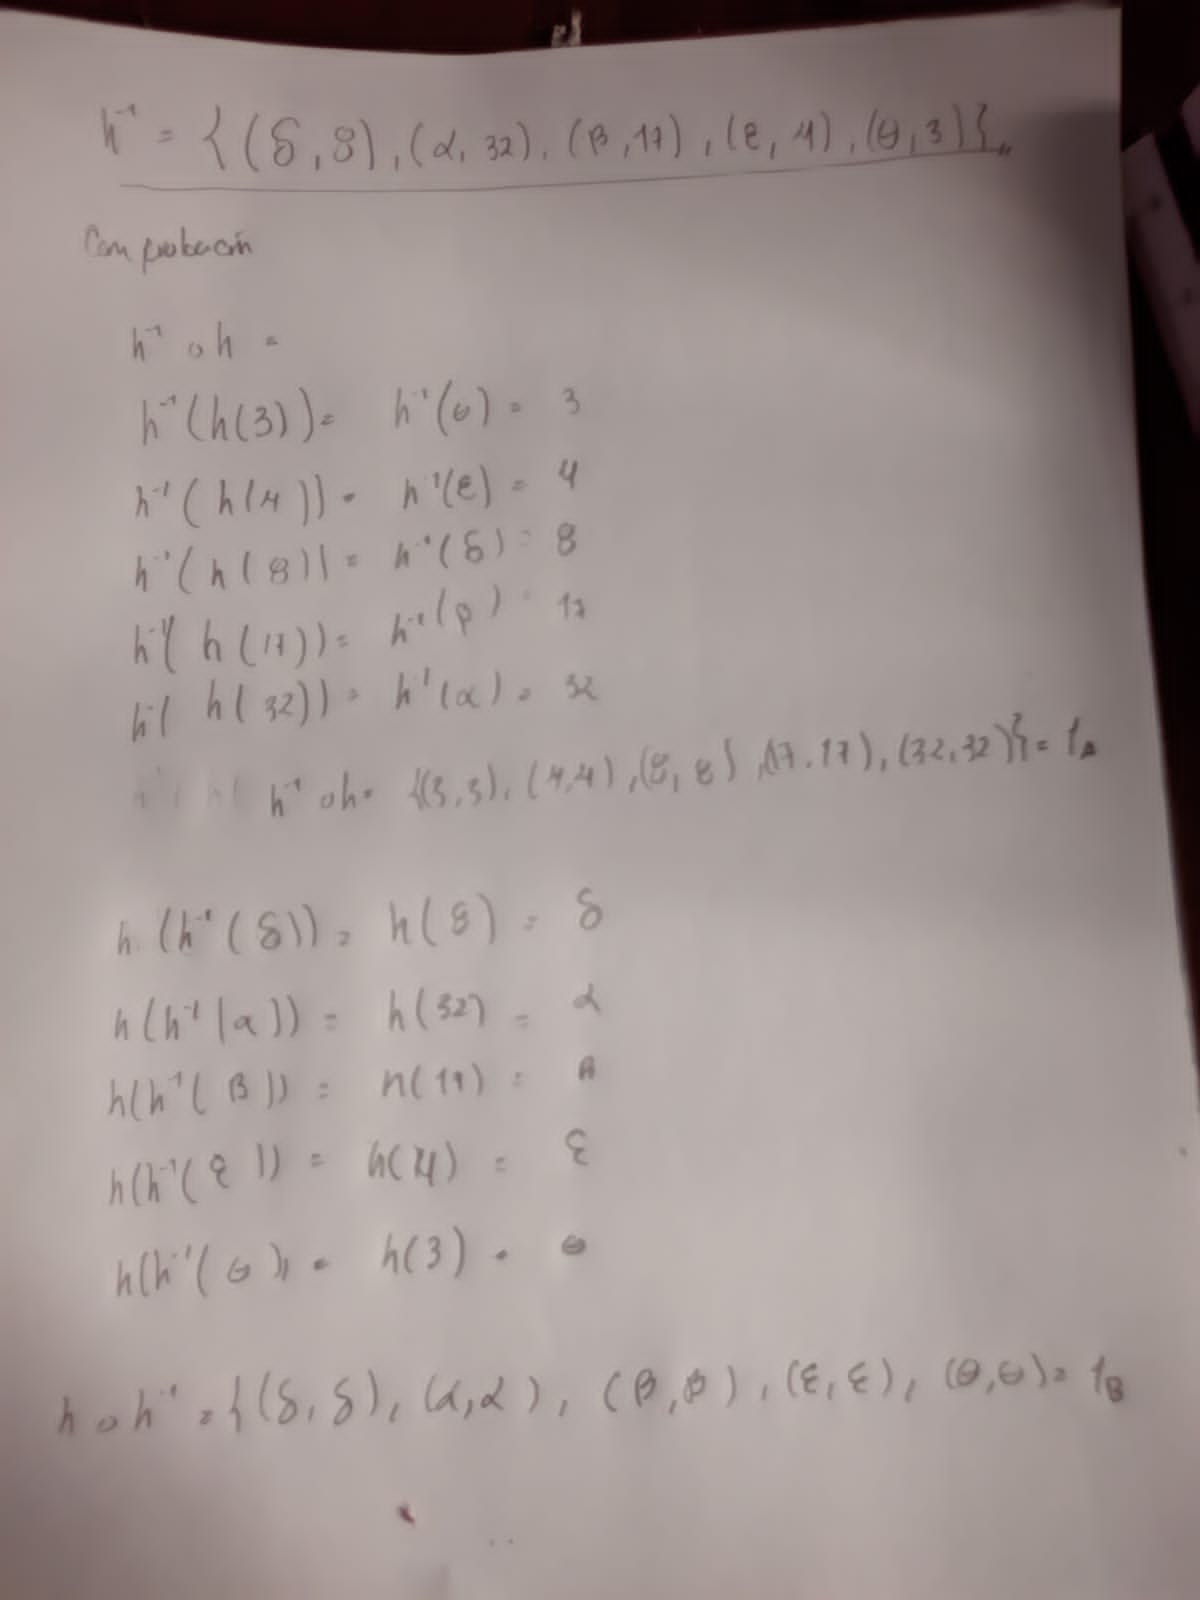 h⁻¹ = {(δ,8),(α,32),(β,17),(ε,4),(θ,3)}
Comprobación
h⁻¹ o h =
h⁻¹(h(3)) = h⁻¹(θ) = 3
h⁻¹(h(4)) = h⁻¹(ε) = 4
h⁻¹(h(8)) = h⁻¹(δ) = 8
h⁻¹(h(17)) = h⁻¹(β) = 17
h⁻¹(h(32)) = h⁻¹(α) = 32
h⁻¹ o h = {(3,3),(4,4),(8,8),(17,17),(32,32)} = 1A
h(h⁻¹(δ)) = h(8) = δ
h(h⁻¹(α)) = h(32) = α
h(h⁻¹(β)) = h(17) = β
h(h⁻¹(ε)) = h(4) = ε
h(h⁻¹(θ)) = h(3) = θ
h o h⁻¹ = {(δ,δ),(α,α),(β,β),(ε,ε),(θ,θ) = 1B